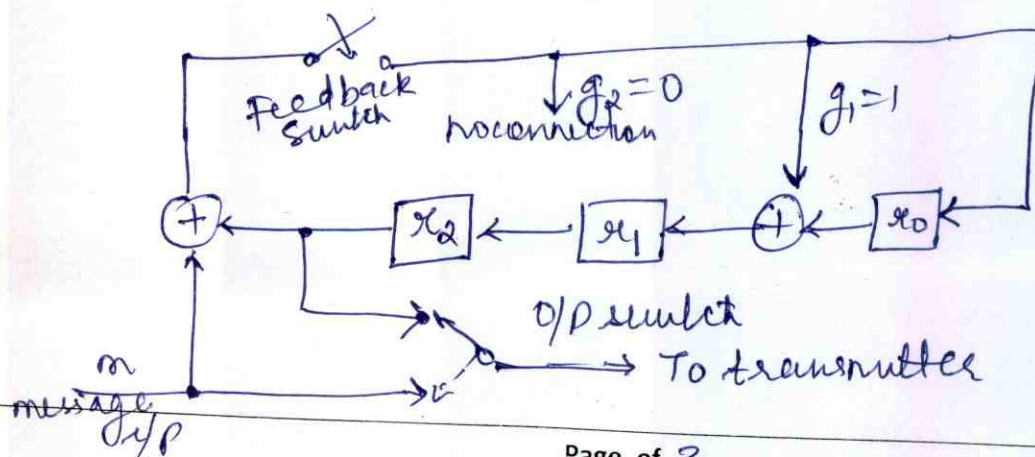 Feedback
Switch
g2=0
noconnection
g1=1
+
r2
r1
+
r0
O/P switch
To transmitter
m
message
i/p
Page of 2